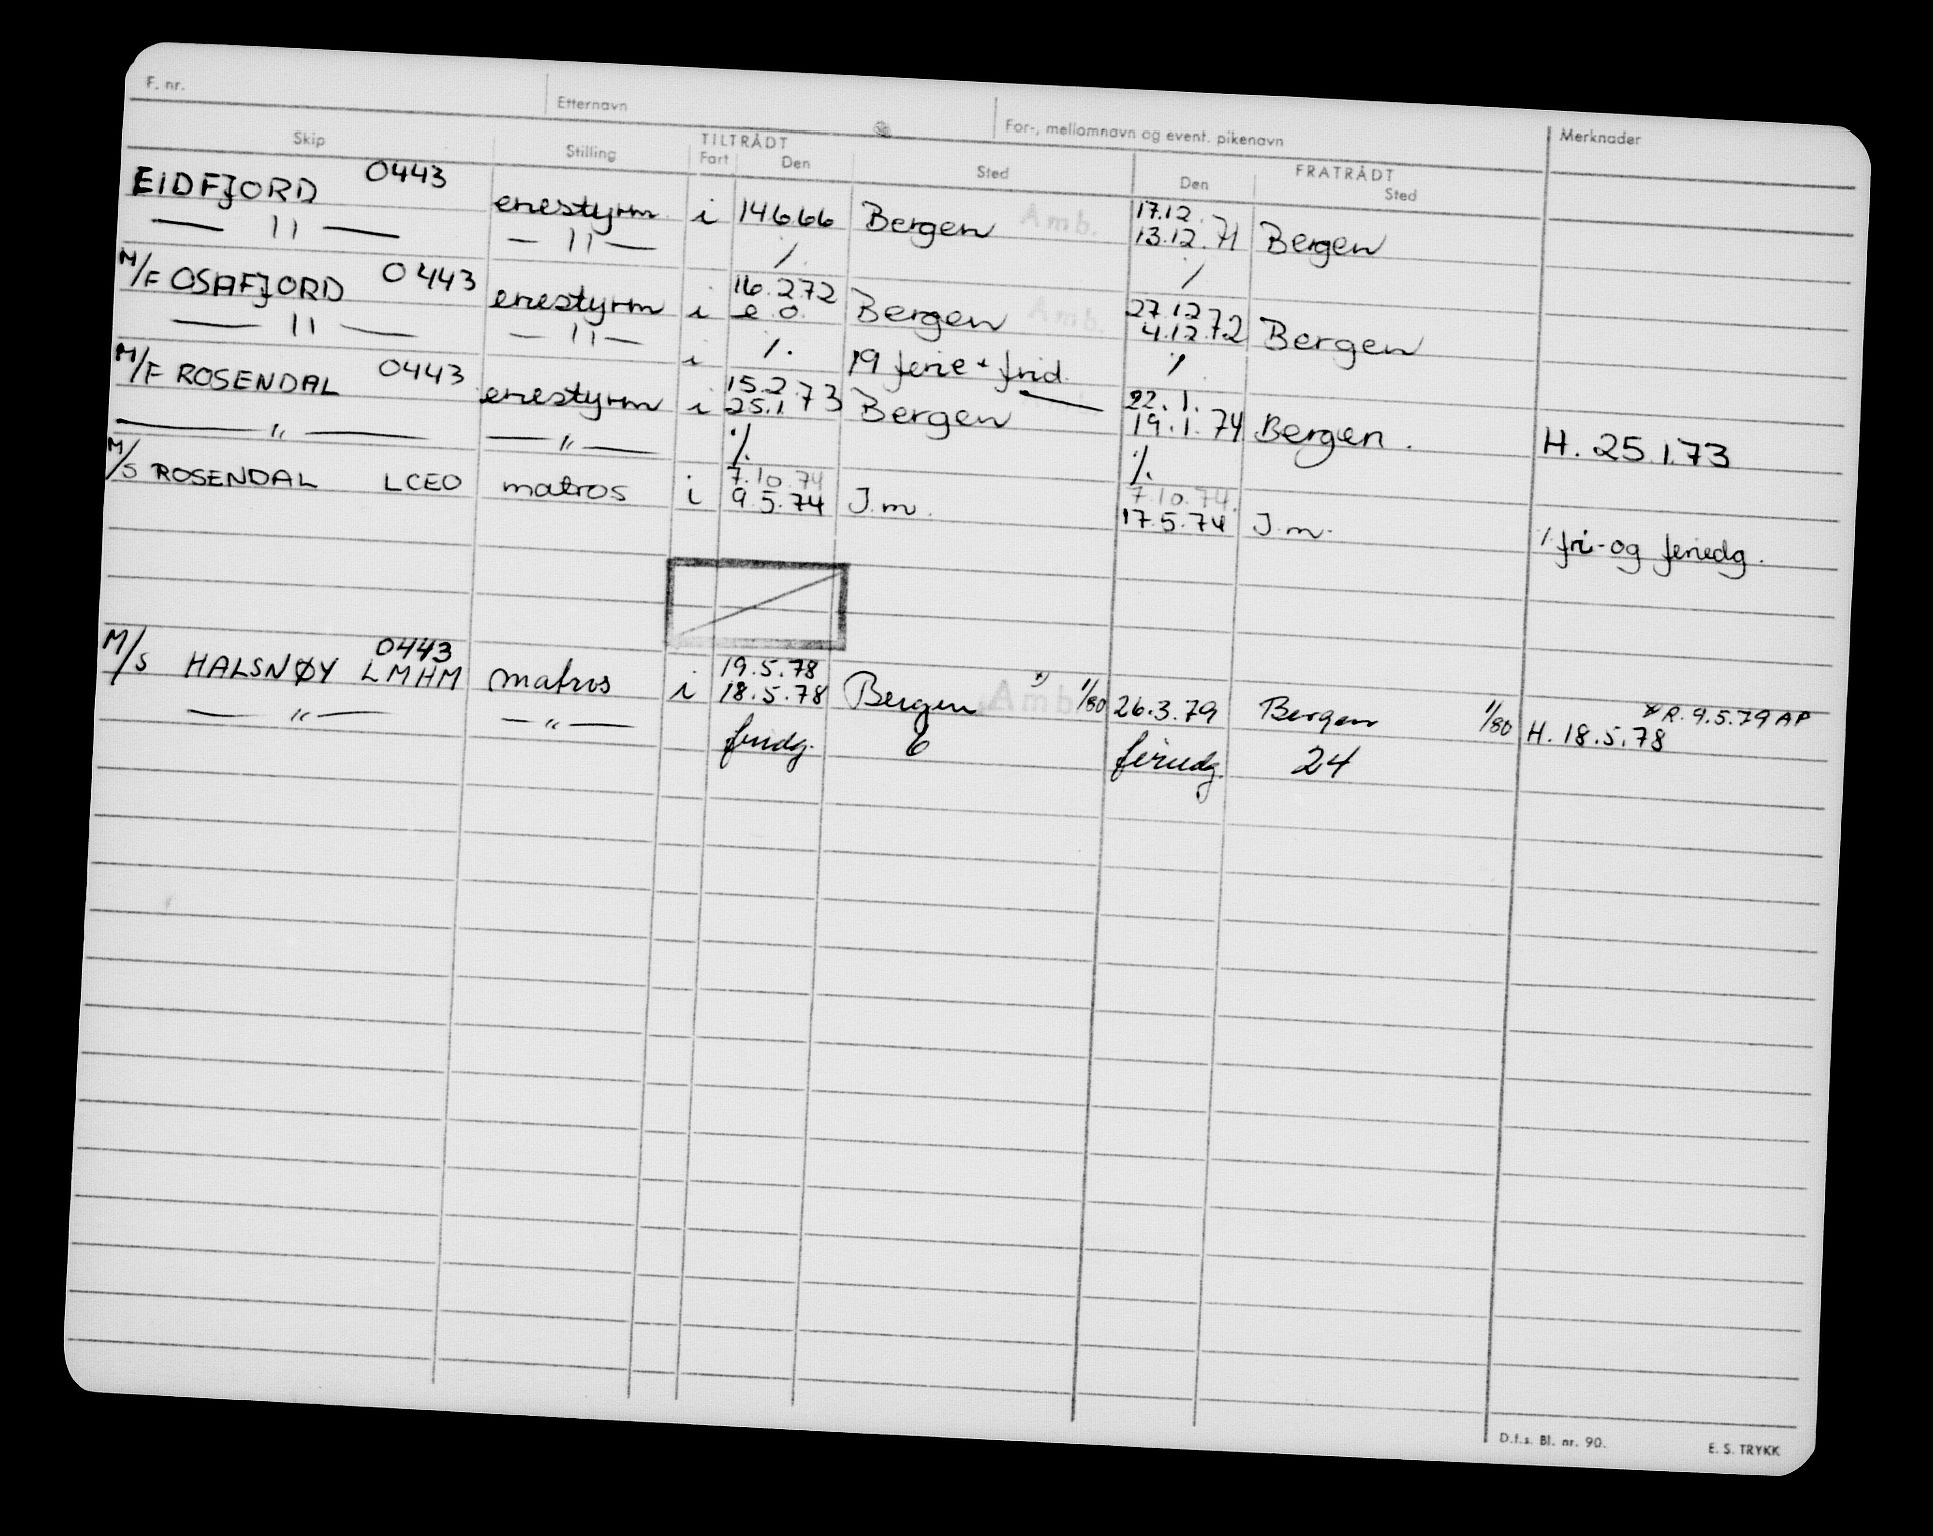 F. nr. Etternavn For-, mellomnavn og event. pikenavn Merknader
Skip Stilling TILTRÅDT Fart Den Sted FRATRÅDT Den Sted
EIDFJORD 0443 enestyrm. i 14.6.66 Bergen Amb. 17.12. 13.12.71 Bergen
— " — — " — ⁒ ⁒
M/F OSAFJORD 0443 enestyrm i 16.2.72 e.o. Bergen Amb. 27.12.72 4.12.72 Bergen
— " — — " — i ⁒ 19 ferie + frid. ⁒
M/F ROSENDAL 0443 enestyrm i 15.2.73 25.1.73 Bergen — 22.1. 19.1.74 Bergen. H. 25.1.73
— " — — " — ⁒ ⁒
M/S ROSENDAL LCEO matros i 7.10.74 9.5.74 J.m. 7.10.74. 17.5.74 J.m. ⁒ fri- og feriedg.
M/S HALSNØY 0443 LMHM matros i 19.5.78 18.5.78 Bergen *) Amb. 1/80 26.3.79 Bergen 1/80 H. 18.5.78 * R. 9.5.79 AP
— " — — " — fridg. 6 feriedg. 24
D.f.s. Bl. nr. 90. E. S. TRYKK